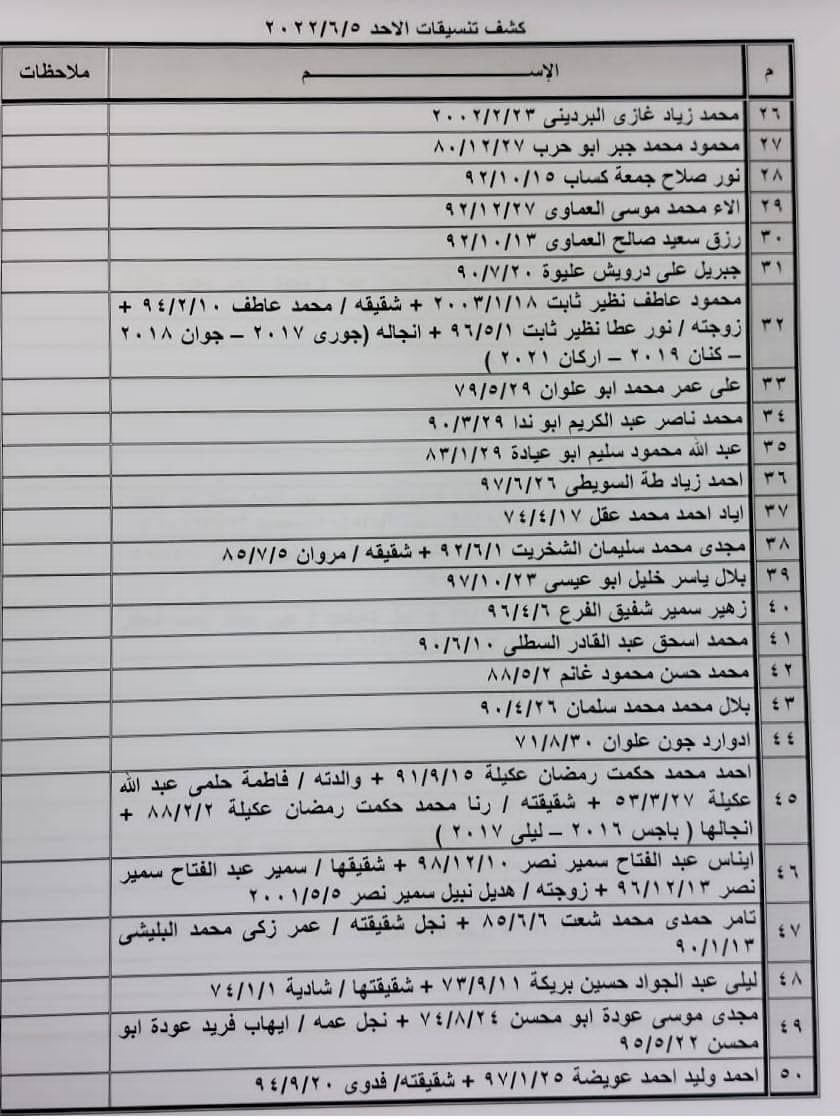 كشف تنسيقات الاحد ٢٠٢٢/٦/٥
م الإســـــــــم ملاحظات
٢٦ محمد زياد غازى البردينى ٢٠٠٢/٢/٢٣
٢٧ محمود محمد جبر ابو حرب ٨٠/١٢/٢٧
٢٨ نور صلاح جمعة كساب ٩٢/١٠/١٥
٢٩ الاء محمد موسى العماوى ٩٢/١٢/٢٧
٣٠ رزق سعيد صالح العماوى ٩٢/١٠/١٣
٣١ جبريل على درويش عليوة ٩٠/٧/٢٠
محمود عاطف نظير ثابت ٢٠٠٣/١/١٨ + شقيقه / محمد عاطف ٩٤/٢/١٠ +
٣٢ زوجته / نور عطا نظير ثابت ٩٦/٥/١ + انجاله (جورى ٢٠١٧ – جوان ٢٠١٨
– كنان ٢٠١٩ – اركان ٢٠٢١ )
٣٣ على عمر محمد ابو علوان ٧٩/٥/٢٩
٣٤ محمد ناصر عبد الكريم ابو ندا ٩٠/٣/٢٩
٣٥ عبد الله محمود سليم ابو عيادة ٨٣/١/٢٩
٣٦ احمد زياد طة السويطى ٩٧/٦/٢٦
٣٧ اياد احمد محمد عقل ٧٤/٤/١٧
٣٨ مجدى محمد سليمان الشخريت ٩٢/٦/١ + شقيقه / مروان ٨٥/٧/٥
٣٩ بلال ياسر خليل ابو عيسى ٩٧/١٠/٢٣
٤٠ زهير سمير شفيق الفرع ٩٦/٤/٦
٤١ محمد اسحق عبد القادر السطلى ٩٠/٦/١٠
٤٢ محمد حسن محمود غانم ٨٨/٥/٢
٤٣ بلال محمد محمد سلمان ٩٠/٤/٢٦
٤٤ ادوارد جون علوان ٧١/٨/٣٠
احمد محمد حكمت رمضان عكيلة ٩١/٩/١٥ + والدته / فاطمة حلمى عبد الله
٤٥ عكيلة ٥٣/٣/٢٧ + شقيقته / رنا محمد حكمت رمضان عكيلة ٨٨/٢/٢ +
انجالها ( باجس ٢٠١٦ – ليلى ٢٠١٧ )
٤٦ ايناس عبد الفتاح سمير نصر ٩٨/١٢/١٠ + شقيقها / سمير عبد الفتاح سمير
نصر ٩٦/١٢/١٣ + زوجته / هديل نبيل سمير نصر ٢٠٠١/٥/٥
٤٧ تامر حمدى محمد شعت ٨٥/٦/٦ + نجل شقيقته / عمر زكى محمد البليشى
٩٠/١/١٣
٤٨ ليلى عبد الجواد حسين بريكة ٧٣/٩/١١ + شقيقتها / شادية ٧٤/١/١
٤٩ مجدى موسى عودة ابو محسن ٧٤/٨/٢٤ + نجل عمه / ايهاب فريد عودة ابو
محسن ٩٥/٥/٢٢
٥٠ احمد وليد احمد عويضة ٩٧/١/٢٥ + شقيقته/ فدوى ٩٤/٩/٢٠